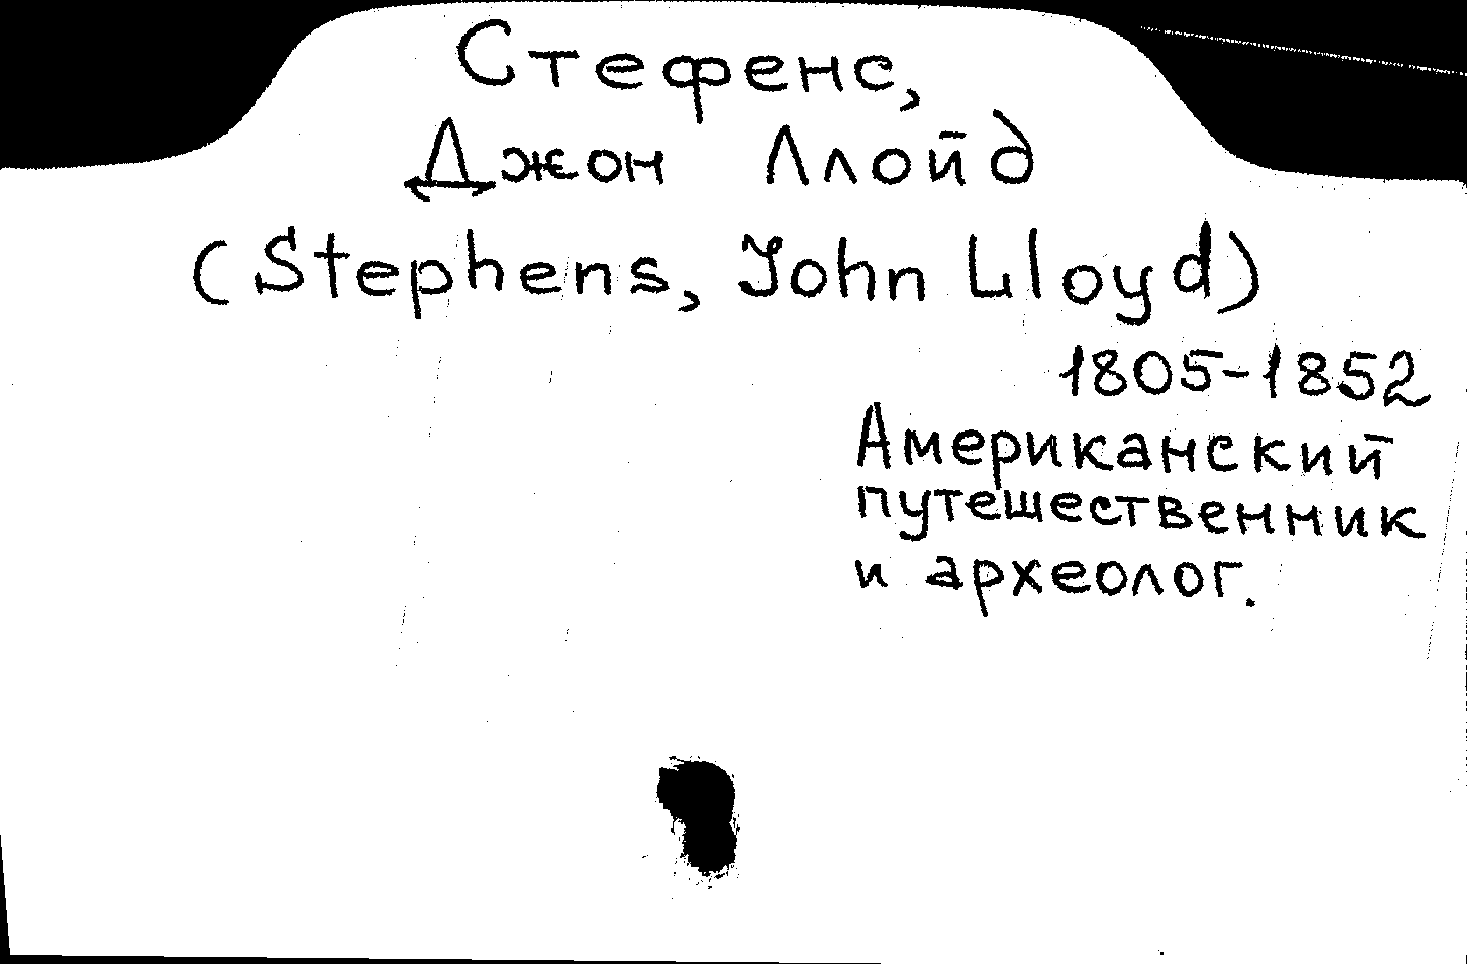 Стефенс,
Джон Ллойд
(Stephens, John Lloyd)
1805-1852
Американский
путешественник
и археолог.